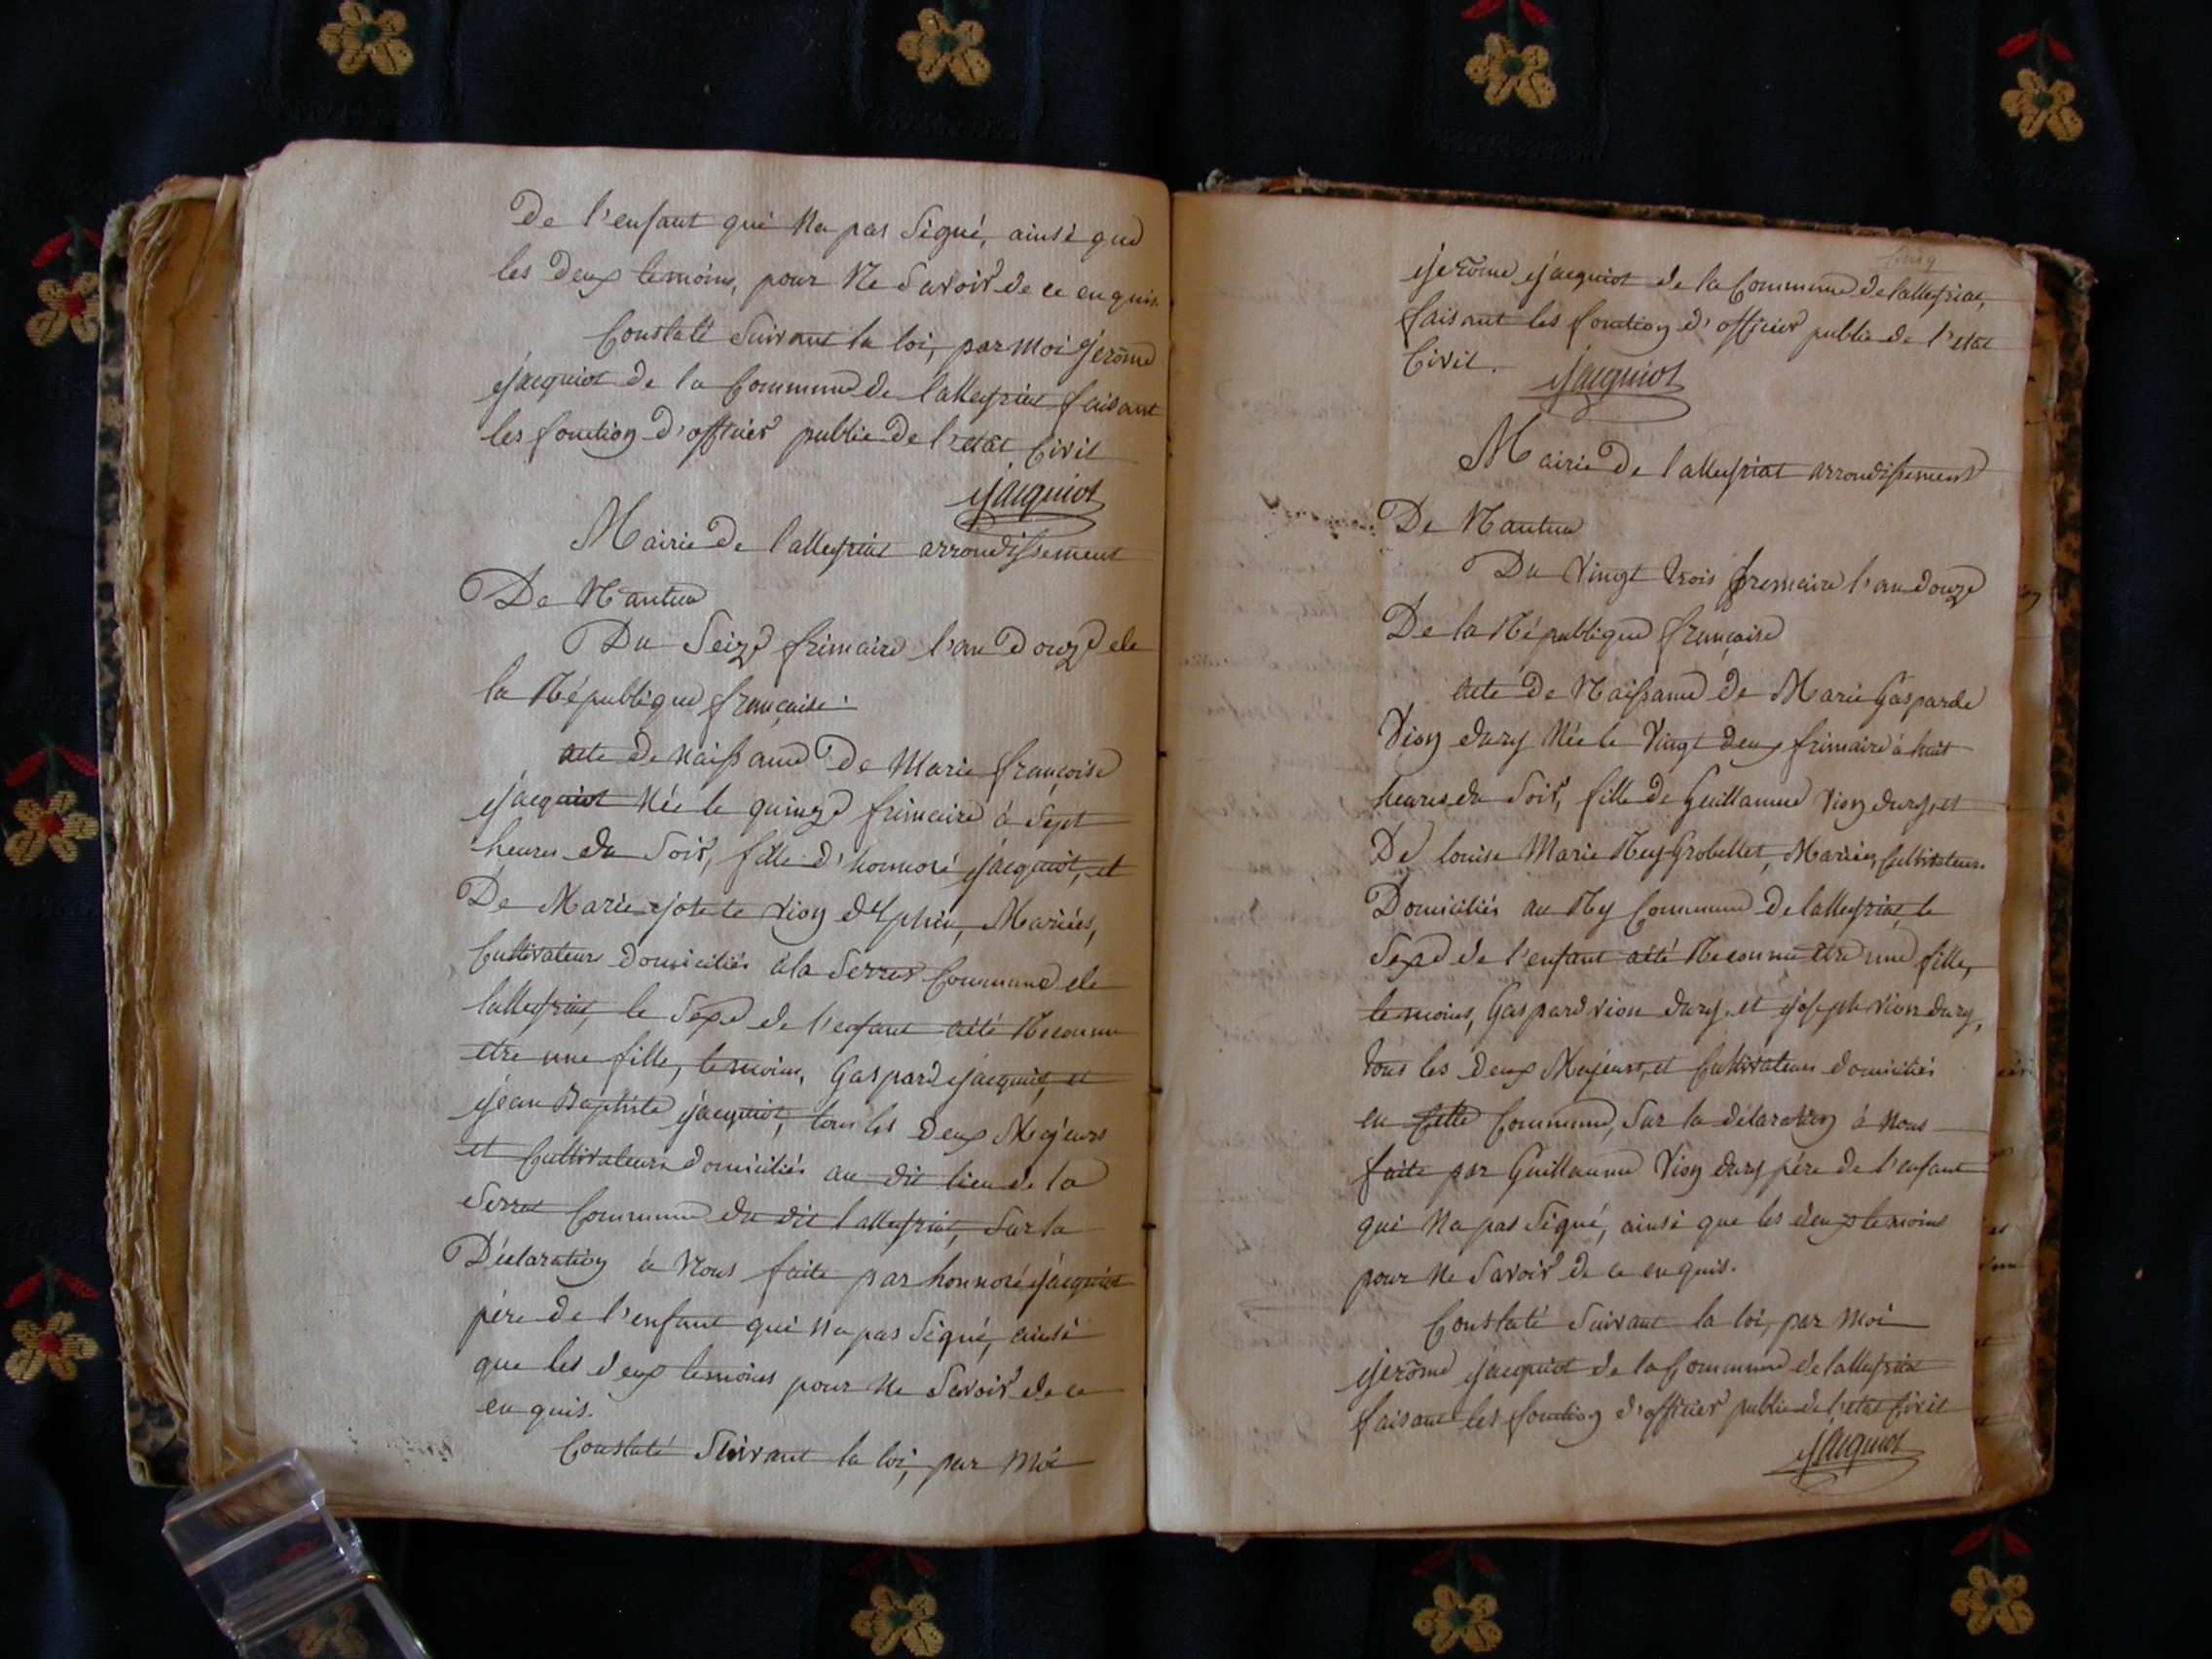 De l'enfant qui Na pas Signé, ainsi que
les deux temoins, pour Ne Savoir de ce enquis.
Constaté Suivant la loi, par moi Jerôme
Jacquiot de la Commune de lalleyriat faisant
les fonction d'officier public de l'etat Civil
Jacquiot
Mairie de lalleyriat arrondissement
De Nantua
Du Seize frimaire l'an Douze de
la République française.
Acte de naissance De Marie françoise
Jacquiot Née le quinze frimaire à Sept
heures du Soir, fille d'honnoré Jacquiot, et
De Marie Josete Vion Delphin, Mariés,
Cultivateurs domiciliés à la Serrat Commune de
lalleyriat, le Sexe de l'enfant aété Reconnu
etre une fille, temoins, Gaspard Jacquiot, et
Jean Baptiste Jacquiot, tous les deux Majeurs
et Cultivateurs domiciliés au dit lieu de la
Serrat Commune du dit lalleyriat, Sur la
Déclaration à Nous faite par honnoré Jacquiot
père de l'enfant qui Na pas Signé, ainsi
que les deux temoins pour Ne Savoir de ce
enquis.
Constaté Suivant la loi, par Moi
Jerôme Jacquiot de la Commune de lalleyriat,
faisant les fonction d'officier public de l'etat
Civil. Jacquiot
Mairie de lalleyriat arrondissement
De Nantua
Du Vingt trois frimaire l'an douze
De la République française
Acte de Naissance de Marie Gasparde
Vion dury Née le Vingt deux frimaire à huit
heures du Soir, fille de Guillaume Vion dury, et
De louise Marie Rey Grobellet, Mariés, Cultivateurs
Domiciliés au Ry Commune de lalleyriat, le
Sexe de l'enfant aété Reconnu être une fille,
temoins, Gaspard vion dury, et Joseph vion dury,
tous les deux Majeurs, et Cultivateurs domiciliés
en Cette Commune, Sur la déclaration à Nous
faite par Guillaume Vion dury père de l'enfant
qui Na pas Signé, ainsi que les deux temoins
pour Ne Savoir de ce enquis.
Constaté Suivant la loi, par Moi
Jerôme Jacquiot de la Commune de lalleyriat
faisant les fonction d'officier public de l'etat Civil
Jacquiot